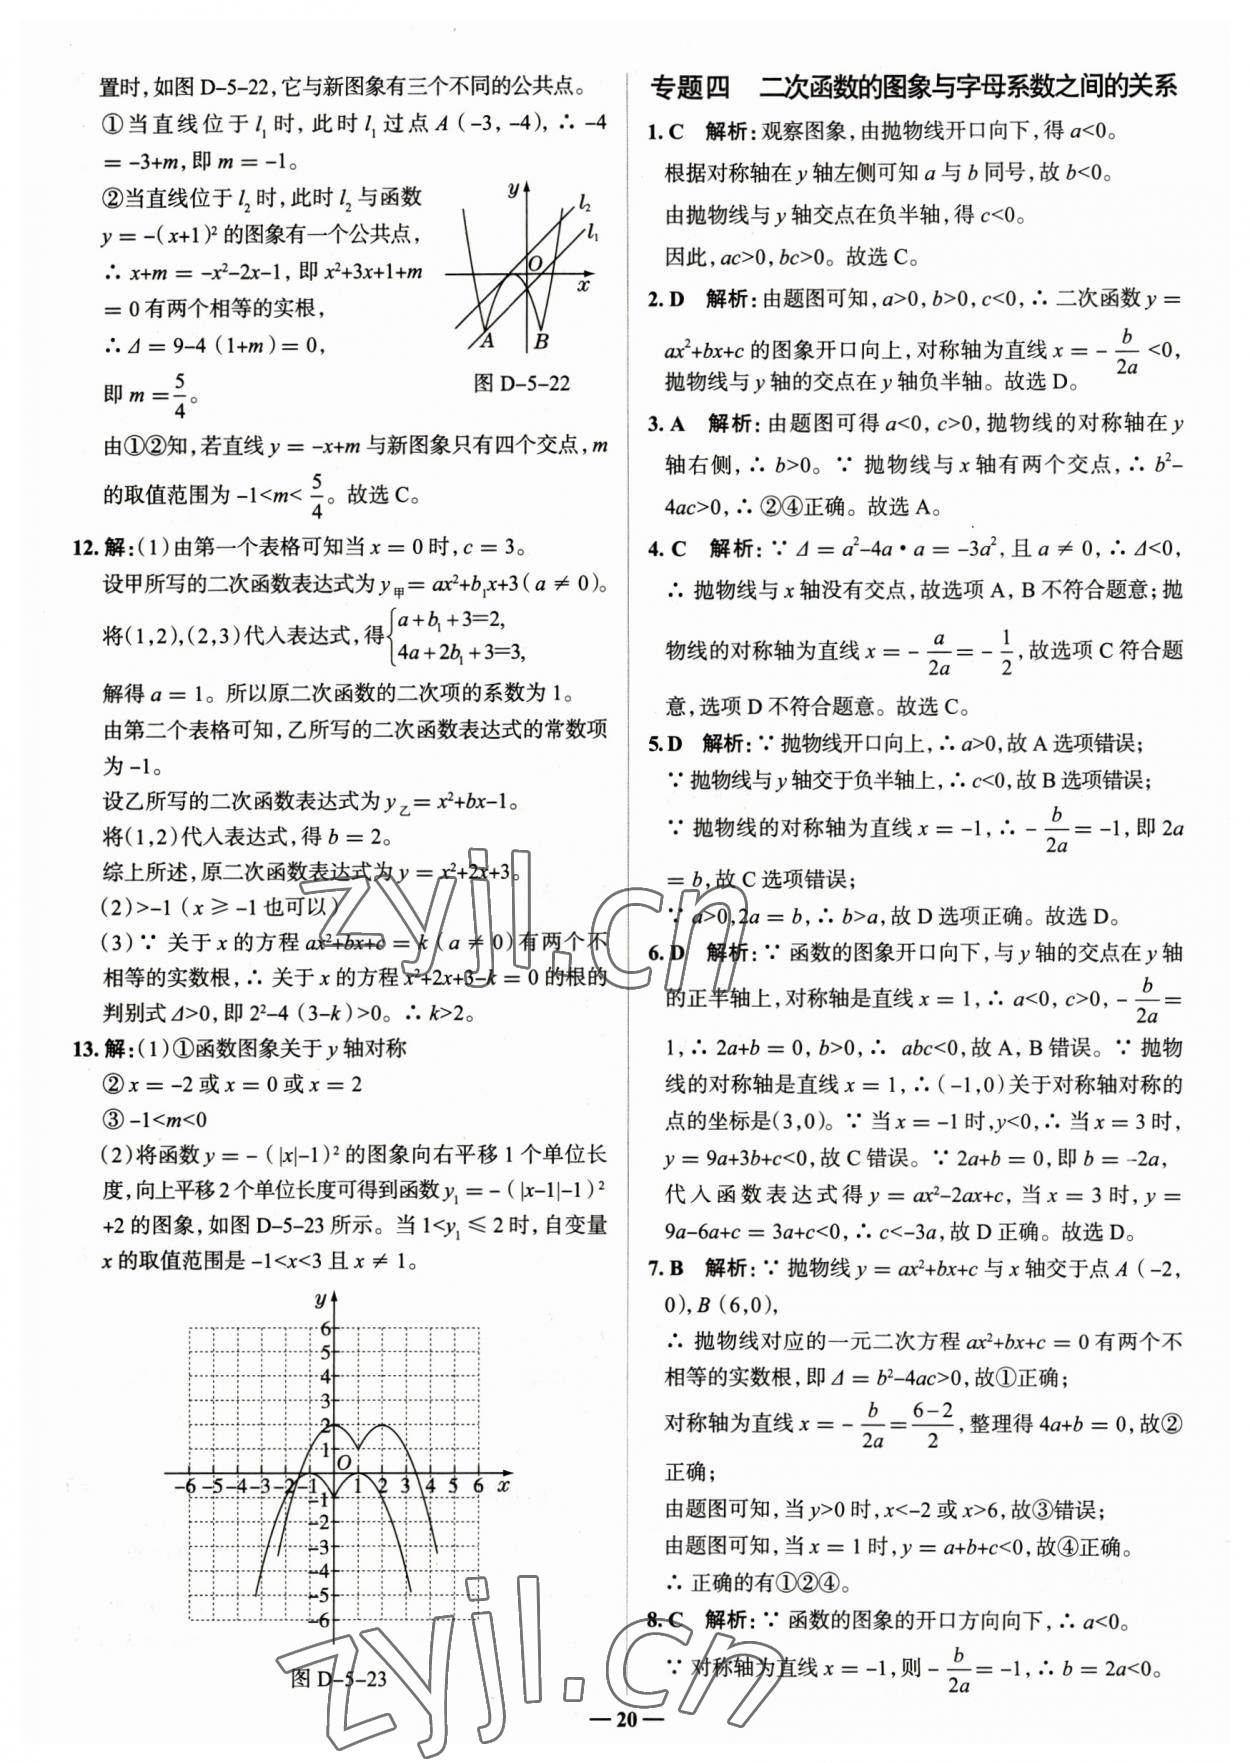 置时,如图 D-5-22,它与新图象有三个不同的公共点。
①当直线位于 l₁ 时,此时 l₁ 过点 A(-3,-4),∴ -4
= -3+m,即 m = -1。
②当直线位于 l₂ 时,此时 l₂ 与函数
y = -(x+1)² 的图象有一个公共点,
∴ x+m = -x²-2x-1,即 x²+3x+1+m
= 0 有两个相等的实根,
∴ Δ = 9-4(1+m) = 0,
即 m = 5/4。
y
l₂
l₁
O
x
A
B
图 D-5-22
由①②知,若直线 y = -x+m 与新图象只有四个交点,m
的取值范围为 -1<m< 5/4。故选 C。
12. 解:(1)由第一个表格可知当 x = 0 时,c = 3。
设甲所写的二次函数表达式为 y甲 = ax²+b₁x+3(a ≠ 0)。
将(1,2),(2,3)代入表达式,得{a+b₁+3=2,
4a+2b₁+3=3,
解得 a = 1。所以原二次函数的二次项的系数为 1。
由第二个表格可知,乙所写的二次函数表达式的常数项
为 -1。
设乙所写的二次函数表达式为 y乙 = x²+bx-1。
将(1,2)代入表达式,得 b = 2。
综上所述,原二次函数表达式为 y = x²+2x+3。
(2)>-1(x ⩾ -1 也可以)
(3)∵ 关于 x 的方程 ax²+bx+c = k(a ≠ 0)有两个不
相等的实数根,∴ 关于 x 的方程 x²+2x+3-k = 0 的根的
判别式 Δ>0,即 2²-4(3-k)>0。∴ k>2。
13. 解:(1)①函数图象关于 y 轴对称
②x = -2 或 x = 0 或 x = 2
③ -1<m<0
(2)将函数 y = -(|x|-1)² 的图象向右平移 1 个单位长
度,向上平移 2 个单位长度可得到函数 y₁ = -(|x-1|-1)²
+2 的图象,如图 D-5-23 所示。当 1<y₁ ⩽ 2 时,自变量
x 的取值范围是 -1<x<3 且 x ≠ 1。
y
6
5
4
3
2
1
O
-6 -5 -4 -3 -2 -1 1 2 3 4 5 6 x
-1
-2
-3
-4
-5
-6
图 D-5-23
专题四 二次函数的图象与字母系数之间的关系
1. C 解析:观察图象,由抛物线开口向下,得 a<0。
根据对称轴在 y 轴左侧可知 a 与 b 同号,故 b<0。
由抛物线与 y 轴交点在负半轴,得 c<0。
因此,ac>0,bc>0。故选 C。
2. D 解析:由题图可知,a>0,b>0,c<0,∴ 二次函数 y =
ax²+bx+c 的图象开口向上,对称轴为直线 x = - b/2a <0,
抛物线与 y 轴的交点在 y 轴负半轴。故选 D。
3. A 解析:由题图可得 a<0,c>0,抛物线的对称轴在 y
轴右侧,∴ b>0。∵ 抛物线与 x 轴有两个交点,∴ b²-
4ac>0,∴ ②④正确。故选 A。
4. C 解析:∵ Δ = a²-4a·a = -3a²,且 a ≠ 0,∴ Δ<0,
∴ 抛物线与 x 轴没有交点,故选项 A,B 不符合题意;抛
物线的对称轴为直线 x = - a/2a = - 1/2,故选项 C 符合题
意,选项 D 不符合题意。故选 C。
5. D 解析:∵ 抛物线开口向上,∴ a>0,故 A 选项错误;
∵ 抛物线与 y 轴交于负半轴上,∴ c<0,故 B 选项错误;
∵ 抛物线的对称轴为直线 x = -1,∴ - b/2a = -1,即 2a
= b,故 C 选项错误;
∵ a>0,2a = b,∴ b>a,故 D 选项正确。故选 D。
6. D 解析:∵ 函数的图象开口向下,与 y 轴的交点在 y 轴
的正半轴上,对称轴是直线 x = 1,∴ a<0,c>0,- b/2a =
1,∴ 2a+b = 0,b>0,∴ abc<0,故 A,B 错误。∵ 抛物
线的对称轴是直线 x = 1,∴ (-1,0)关于对称轴对称的
点的坐标是(3,0)。∵ 当 x = -1 时,y<0,∴ 当 x = 3 时,
y = 9a+3b+c<0,故 C 错误。∵ 2a+b = 0,即 b = -2a,
代入函数表达式得 y = ax²-2ax+c,当 x = 3 时,y =
9a-6a+c = 3a+c<0,∴ c<-3a,故 D 正确。故选 D。
7. B 解析:∵ 抛物线 y = ax²+bx+c 与 x 轴交于点 A(-2,
0),B(6,0),
∴ 抛物线对应的一元二次方程 ax²+bx+c = 0 有两个不
相等的实数根,即 Δ = b²-4ac>0,故①正确;
对称轴为直线 x = - b/2a = (6-2)/2,整理得 4a+b = 0,故②
正确;
由题图可知,当 y>0 时,x<-2 或 x>6,故③错误;
由题图可知,当 x = 1 时,y = a+b+c<0,故④正确。
∴ 正确的有①②④。
8. C 解析:∵ 函数的图象的开口方向向下,∴ a<0。
∵ 对称轴为直线 x = -1,则 - b/2a = -1,∴ b = 2a<0。
— 20 —
zyjl.cn
zyjl.cn